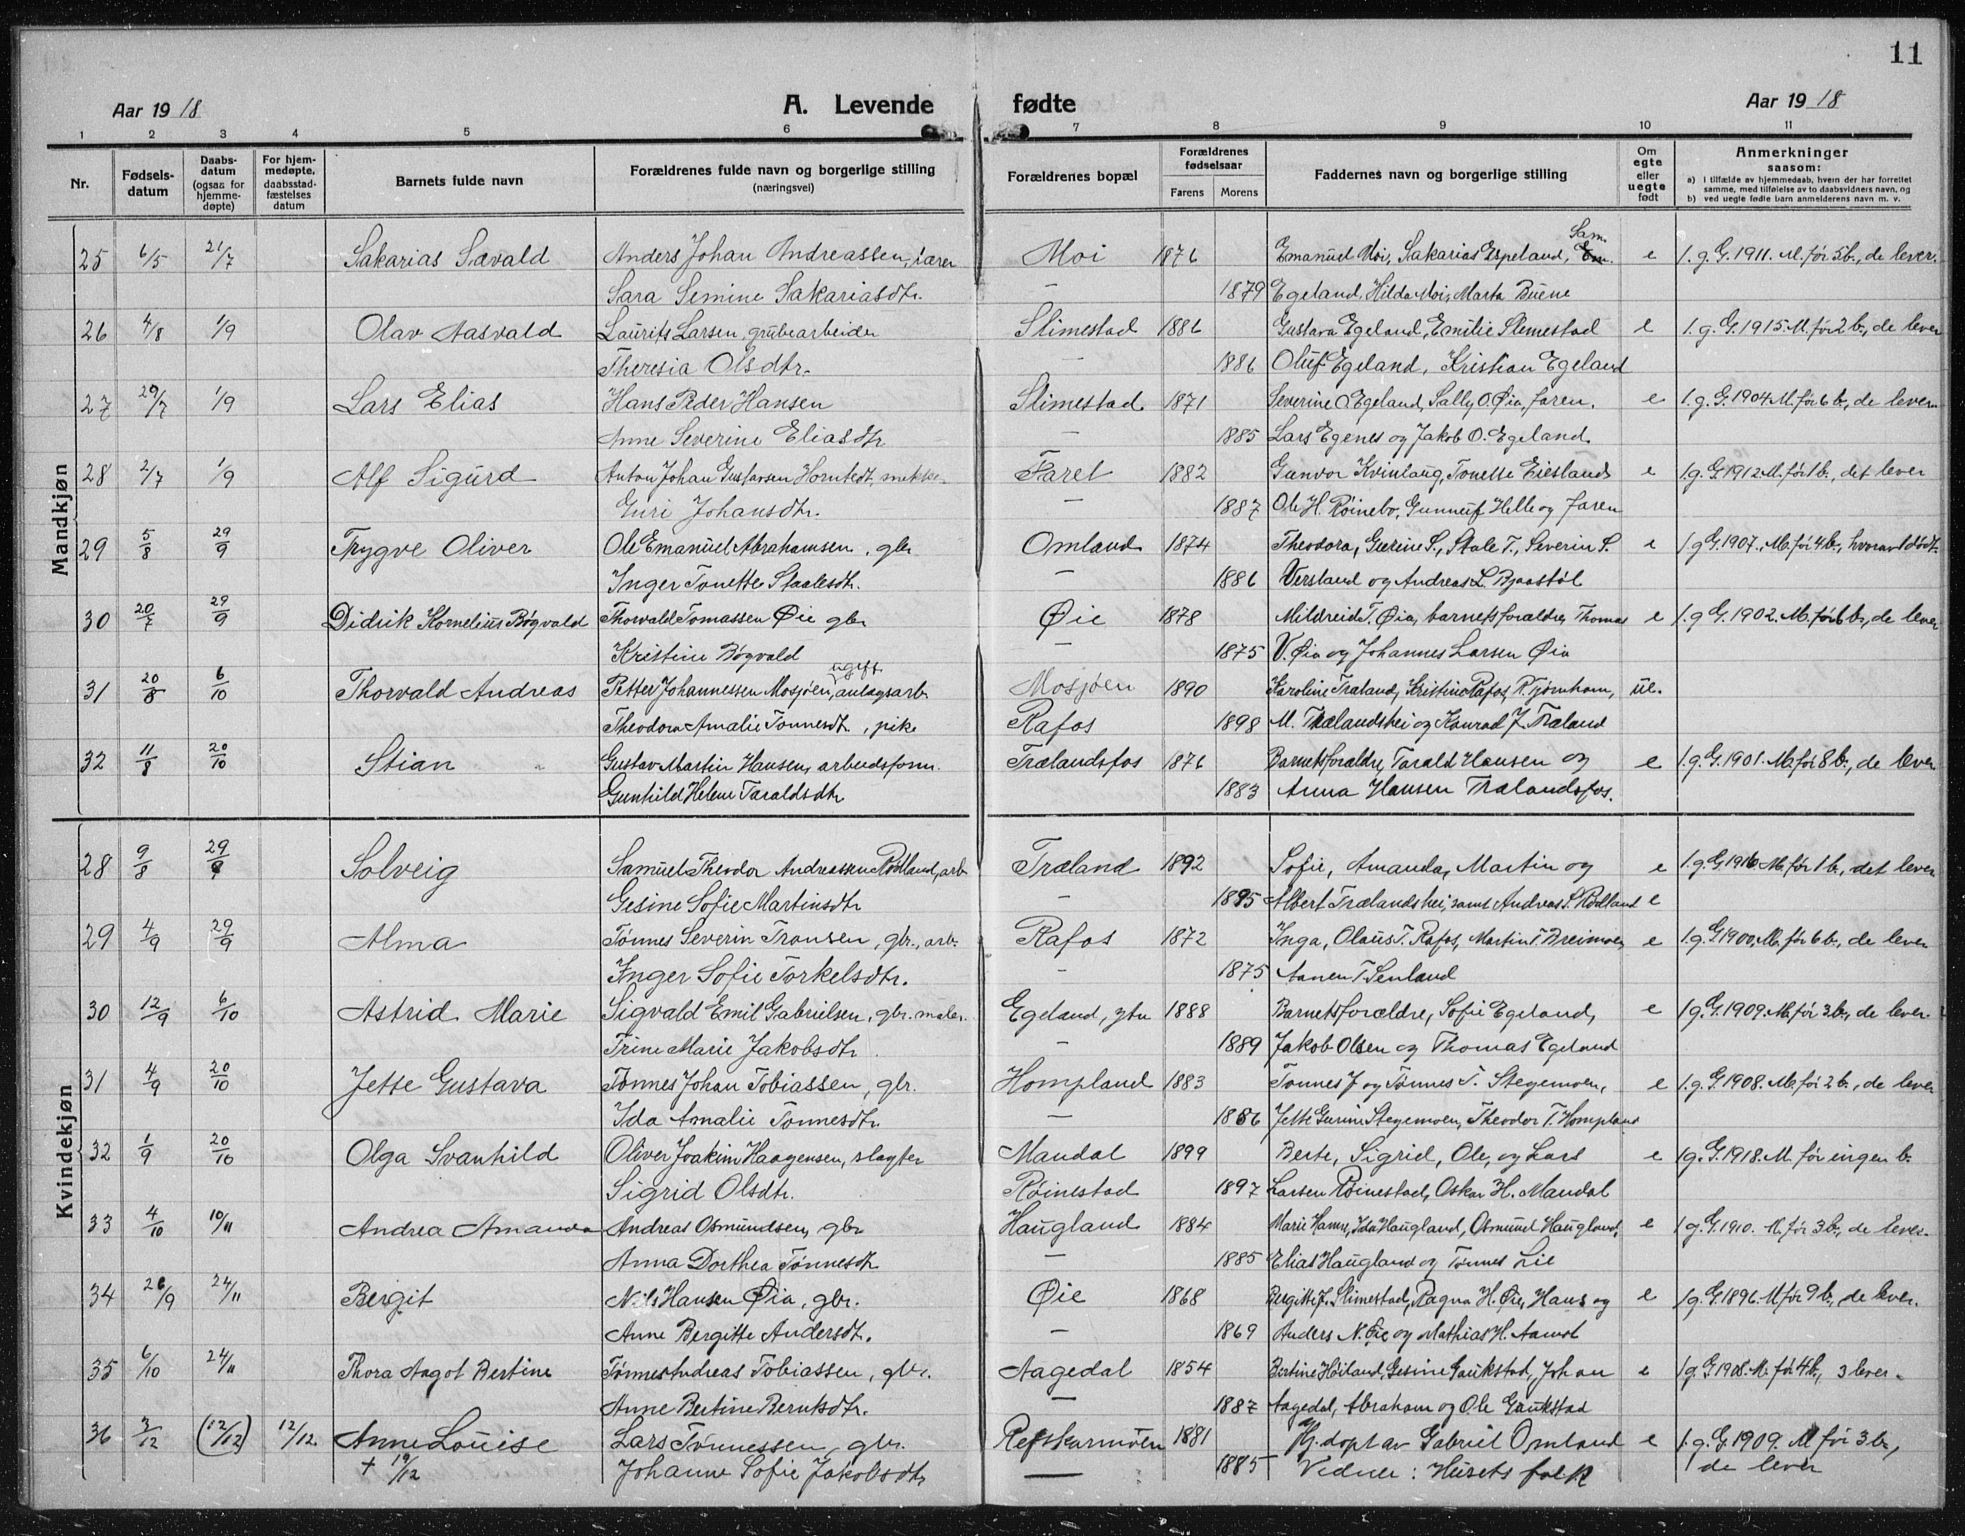 11
Aar 1918 A. Levende fødte Aar 1918
1 2 3 4 5 6 7 8 9 10 11
Nr. Fødselsdatum Daabsdatum (ogsaa for hjemmedøpte) For hjemmedøpte, daabsstadfæstelses datum Barnets fulde navn Forældrenes fulde navn og borgerlige stilling (næringsvei) Forældrenes bopæl Forældrenes fødselsaar Farens Morens Faddernes navn og borgerlige stilling Om egte eller uegte født Anmerkninger saasom: a) I tilfælde av hjemmedaab, hvem der har forrettet samme, med tilføielse av to daabsvidners navn, og b) ved uegte fødte barn anmelderens navn m. v.
Mandkjøn
25 6/5 21/7 Sakarias Sævald Anders Johan Andreassen, lærer Moi 1876 Emanuel Moi, Sakarias Espeland, Sam. e 1. g. G. 1911. M. før 5 b., de lever.
Sara Semine Sakariasdtr. — 1879 Egeland, Hilda Moi, Marta Buene
26 4/8 1/9 Olav Aasvald Laurits Larsen, grubearbeider Slimestad 1886 Gustava Egeland, Emilie Slimestad e 1. g. G. 1915. M. før 2 b., de lever
Theresia Olsdtr. — 1886 Oluf Egeland, Kristian Egeland
27 29/7 1/9 Lars Elias Hans Peder Hansen Slimestad 1871 Severine O. Egeland, Sally O. Øia, faren. e 1. g. G. 1904 M. før 6 b., de lever
Anne Severine Eliasdtr — 1885 Lars Egenes og Jakob O. Egeland.
28 2/7 1/9 Alf Sigurd Anton Johan Gustavsen Hornfedt, Faret 1882 Gunvor Kvinlaug, Tonette Eiesland e 1 g. G. 1912. M. før 1 b., det lever
Guri Johansdtr. — 1887 Ole H. Røinebo, Gunneuf Helle og faren
29 5/8 29/9 Trygve Oliver Ole Emanuel Abrahamsen, gbr Omland 1874 Theodora, Gurine S., Stale T., Severin S. e 1 g G. 1907. M. før 4 b., hvorav 1 død.
Inger Tonette Staalesdtr. — 1886 Versland og Andreas L. Bjaastøl
30 20/7 29/9 Didrik Kornelius Bøgvald Thorvald Tomassen Øie gbr Øie 1878 Mildreid T. Øia, barnets forældre, Thomas e 1 g G. 1902. M. før 6 b., de lever
Kristine Bøgvald — 1875 V. Øia og Johannes Larsen Øia
31 20/8 6/10 Thorvald Andreas Petter Johannessen Mosjøen, ugift anlægsarb. Mosjøen 1890 Karoline Træland, Kristine Rafos, R. Tjørnhom, ue.
Theodora Amalie Tonnesdtr, pike Rafos 1898 M. Trælandshei og Konrad J. Træland
32 11/8 20/10 Stian Gustav Martin Hansen, arbeidsform. Trælandsfos 1876 Barnets forældre, Tarald Hansen og e 1. g. G. 1901. M. før 8 b., de lever
Gunhild Helene Taraldsdtr — 1883 Anna Hansen Trælandsfos.
Kvindekjøn
28 9/8 29/9 Solveig Samuel Theodor Andreassen Rødland, arb. Træland 1892 Sofie, Amanda, Martin og e 1. g. G. 1916 M. før 1 b., det lever
Gesine Sofie Martinsdtr — 1895 Albert Trælandshei, samt Andreas S. Rødland e
29 4/9 29/9 Alma Tønnes Severin Transen, gbr., arb. Rafos 1872 Inga, Olaus T. Rafos, Martin T. Breimoen, e 1. g. G. 1900, M. før 6 b., de lever
Inger Sofie Torkelsdtr. — 1875 Aanen T. Senland
30 12/9 6/10 Astrid Marie Sigvald Emil Gabrielsen, gbr. maler. Egeland, ytre 1888 Barnets forældre, Sofie Egeland, e 1 g. G. 1909. M. før 3 b., de lever
Trine Marie Jakobsdtr — 1889 Jakob Olsen og Thomas Egeland
31 4/9 20/10 Jette Gustava Tønnes Johan Tobiassen, gbr. Hompland 1883 Tønnes J og Tønnes T. Stegemoen, e 1. g. G. 1908. M. før 2 b., de lever
Ida Amalie Tønnesdtr. — 1886 Jette Gurine Stegemoen, Theodor T. Hompland
32 1/9 20/10 Olga Svanhild Oliver Joakim Haagensen, slagter Mandal 1899 Berte, Sigrid, Ole, og Lars e 1 g. G. 1918. M. før ingen b.
Sigrid Olsdtr. Røinestad 1897 Larsen Røinestad, Oskar H. Mandal
33 4/10 10/11 Andrea Amanda Andreas Osmundsen, gbr Haugland 1884 Marie Hamre, Ida Haugland, Osmund Haugland, e 1 g. G. 1910. M. før 3 b., de lever.
Anna Dorthea Tønnesdtr — 1885 Elias Haugland og Tønnes Lie
34 26/9 24/11 Bergit Nils Hansen Øia, gbr. Øie 1868 Bergitte J. Slimestad, Ragna H. Øie, Hans og e 1 g. G. 1896. M. før 9 b., de lever.
Anne Bergitte Andersdtr. — 1869 Anders N. Øie og Mathias H. Aamot
35 6/10 24/11 Thora Aagot Bertine Tønnes Andreas Tobiassen, gbr. Aagedal 1854 Bertine Høiland, Gesine Gaukstad, Johan e 1 g. G. 1908. M. før 4 b., 3 lever.
Anne Bertine Berntsdtr. — 1887 Aagedal, Abraham og Ole Gaukstad
36 3/12 (12/12) 12/12 Anne Louise Lars Tønnessen, gbr. Refskarmoen 1881 Hj. døpt av Gabriel Omland e 1. g. G. 1909. M før 3 b,
+ 19/12 Johanne Sofie Jakobsdtr — 1885 Vidner: Husets folk de lever